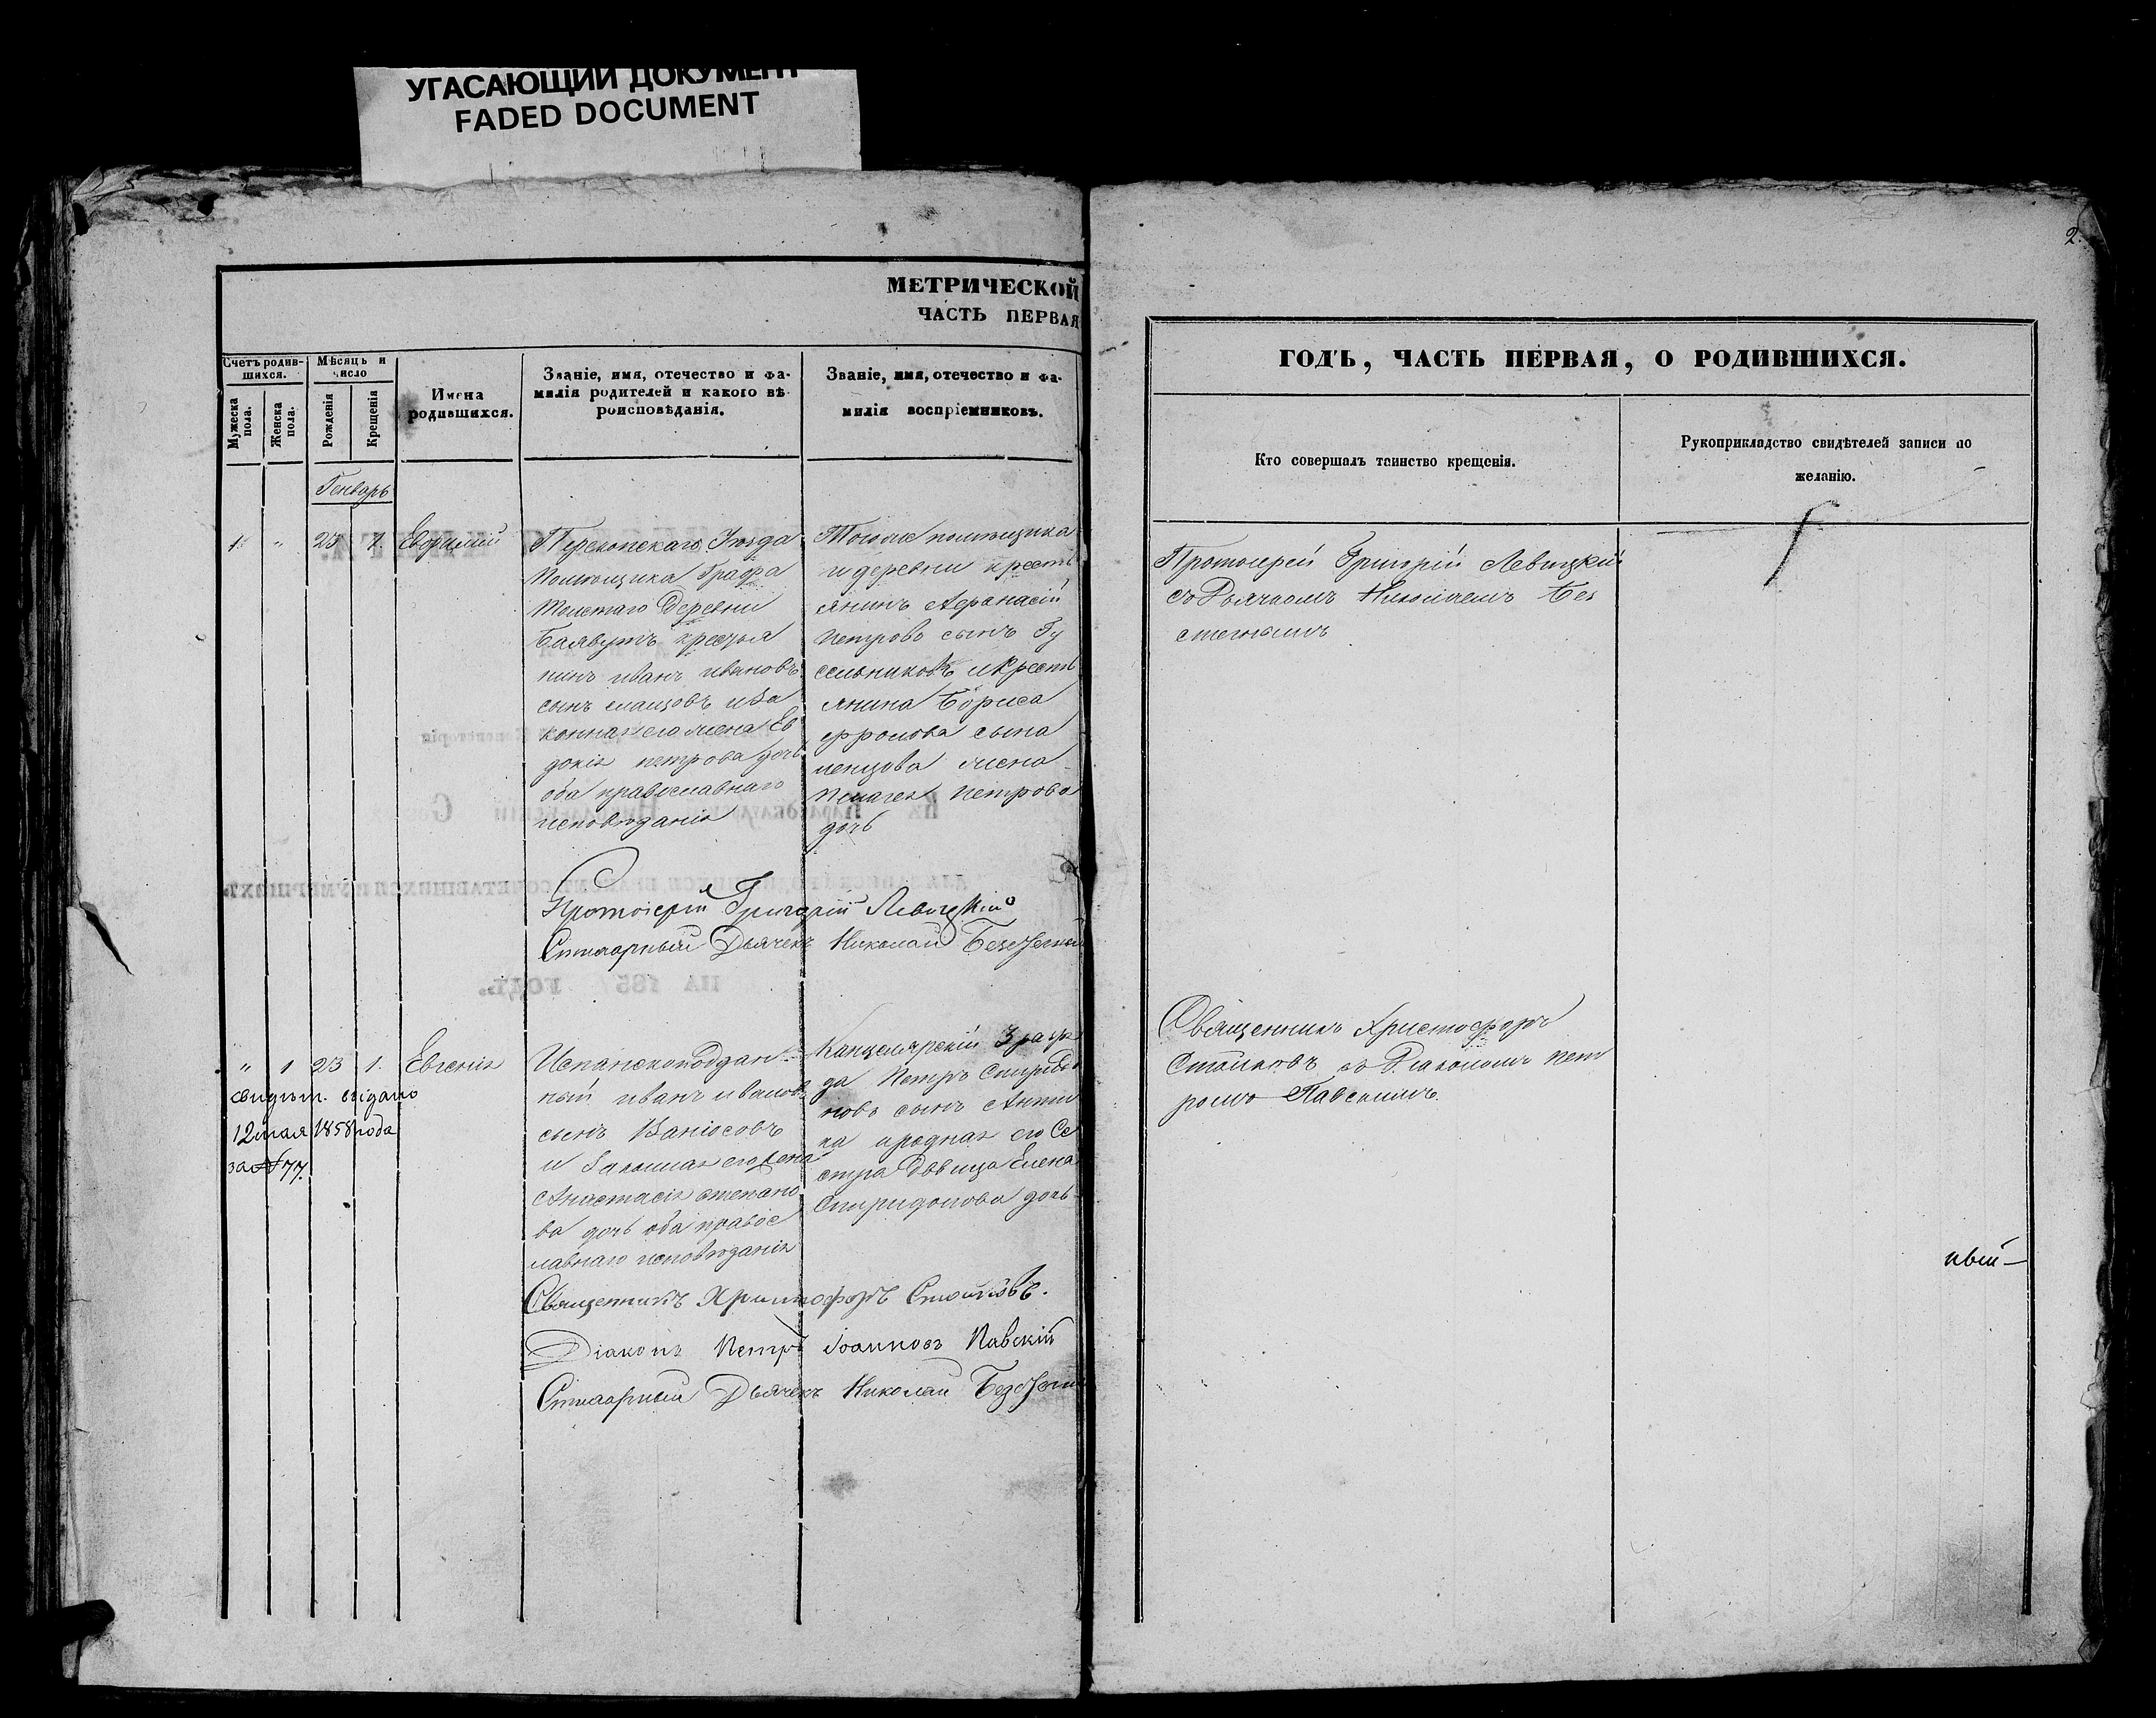 УГАСАЮЩИЙ ДОКУМЕНТ
FADED DOCUMENT
2.
МЕТРИЧЕСКОЙ
ЧАСТЬ ПЕРВАЯ
Счетъ родив-
шихся.
Мѣсяцъ и
число
Мужеска
пола.
Женска
пола.
Рожденія
Крещенія
Имена
родившихся.
Званіе, имя, отечество и фа-
милія родителей и какого вѣ
роисповѣданія.
Званіе, имя, отечество и фа-
милія воспріемниковъ.
Генварь
1. " 7.
Перекопскаго Уѣзда
Помѣщика Графа
Толстаго Деревни
крестья
нинъ иванъ ивановъ
сынъ иза
конная его жена Ев
докія петрова дочь
оба православнаго
исповѣданія
Тогоже помѣщика
и деревни кресть
янинъ Афанасій
петровъ сынъ Гу
сельниковъ и кресть
янина Бориса
фролова сына
жена
петрова
дочь
Протоіерей Григорій Левицкій
Дьячекъ Николай
" 1 23 1. Евгенія
свидѣт. видано
12 мая 1858 года
за №77.
Испанскоподдан-
ный иванъ ивановъ
сынъ
и законная его жена
Анастасія степано
ва дочь оба правос
лавнаго исповѣданія
Канцелярскій
Петръ Спиридо
новъ сынъ
и родная его Се
стра Дѣвица Елена
Спиридонова дочь
Священникъ Христофоръ Стойковъ.
Діаконъ Петръ Іоанновъ Павскій
Дьячекъ Николай
ГОДЪ, ЧАСТЬ ПЕРВАЯ, О РОДИВШИХСЯ.
Кто совершалъ таинство крещенія.
Рукоприкладство свидѣтелей записи по
желанію.
Протоіерей Григорій Левицкій
съ Дьячкомъ Николаемъ Без
Священникъ Христофоръ
Стойковъ съ Діакономъ Пет
ромъ Павскимъ.
ный—